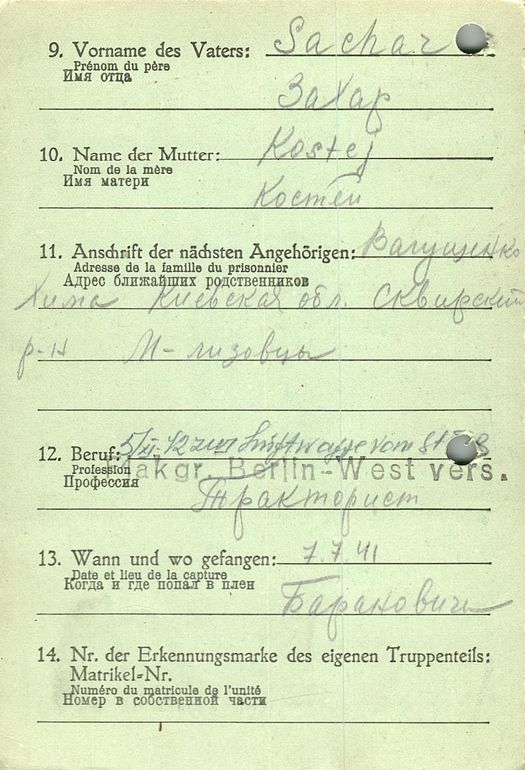 9. Vorname des Vaters: Sachar
Prénom du père
Имя отца
Захар
10. Name der Mutter: Kostej
Nom de la mère
Имя матери
Костей
11. Anschrift der nächsten Angehörigen: Вагущенко
Adresse de la famille du prisonnier
Адрес ближайших родственников
Хима Киевская обл. Сквирский
р-н М-лизовцы
5/XI.42 zur Luftwaffe vom St
12. Beruf:
Flakgr. Berlin-West vers.
Profession
Профессия
Тракторист
13. Wann und wo gefangen: 7.7.41
Date et lieu de la capture
Когда и где попал в плен
Барановичи
14. Nr. der Erkennungsmarke des eigenen Truppenteils:
Matrikel-Nr.
Numéro du matricule de l'unité
Номер в собственной части